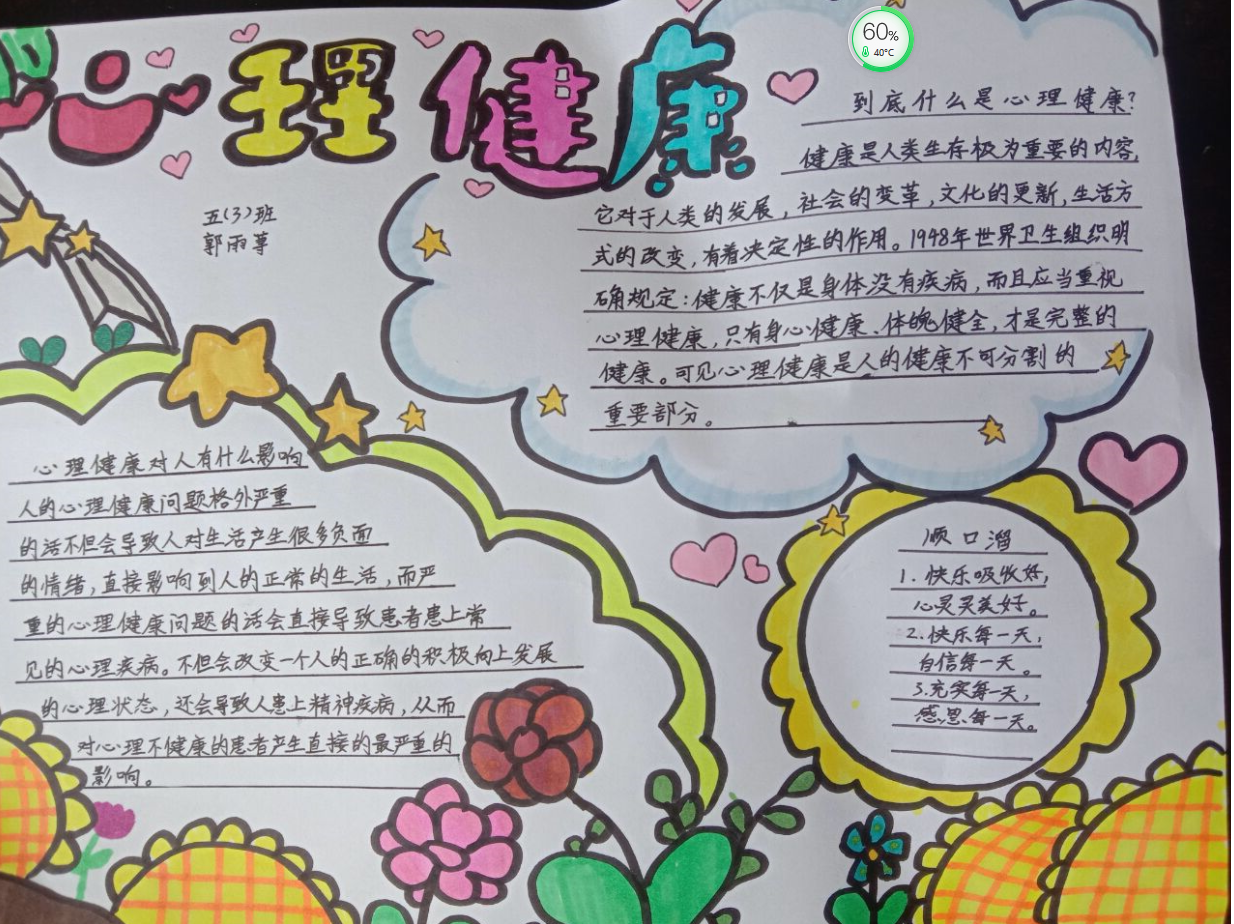 心理健康
60%
40°C
五(3)班
郭雨莩
到底什么是心理健康?
健康是人类生存极为重要的内容,
它对于人类的发展,社会的变革,文化的更新,生活方
式的改变,有着决定性的作用。1948年世界卫生组织明
确规定:健康不仅是身体没有疾病,而且应当重视
心理健康,只有身心健康、体魄健全,才是完整的
健康。可见心理健康是人的健康不可分割的
重要部分。
心理健康对人有什么影响
人的心理健康问题格外严重
的话不但会导致人对生活产生很多负面
的情绪,直接影响到人的正常的生活,而严
重的心理健康问题的话会直接导致患者患上常
见的心理疾病。不但会改变一个人的正确的积极向上发展
的心理状态,还会导致人患上精神疾病,从而
对心理不健康的患者产生直接的最严重的
影响。
顺口溜
1.快乐吸收好,
心灵灵美好。
2.快乐每一天,
自信每一天。
3.充实每一天,
感恩每一天。